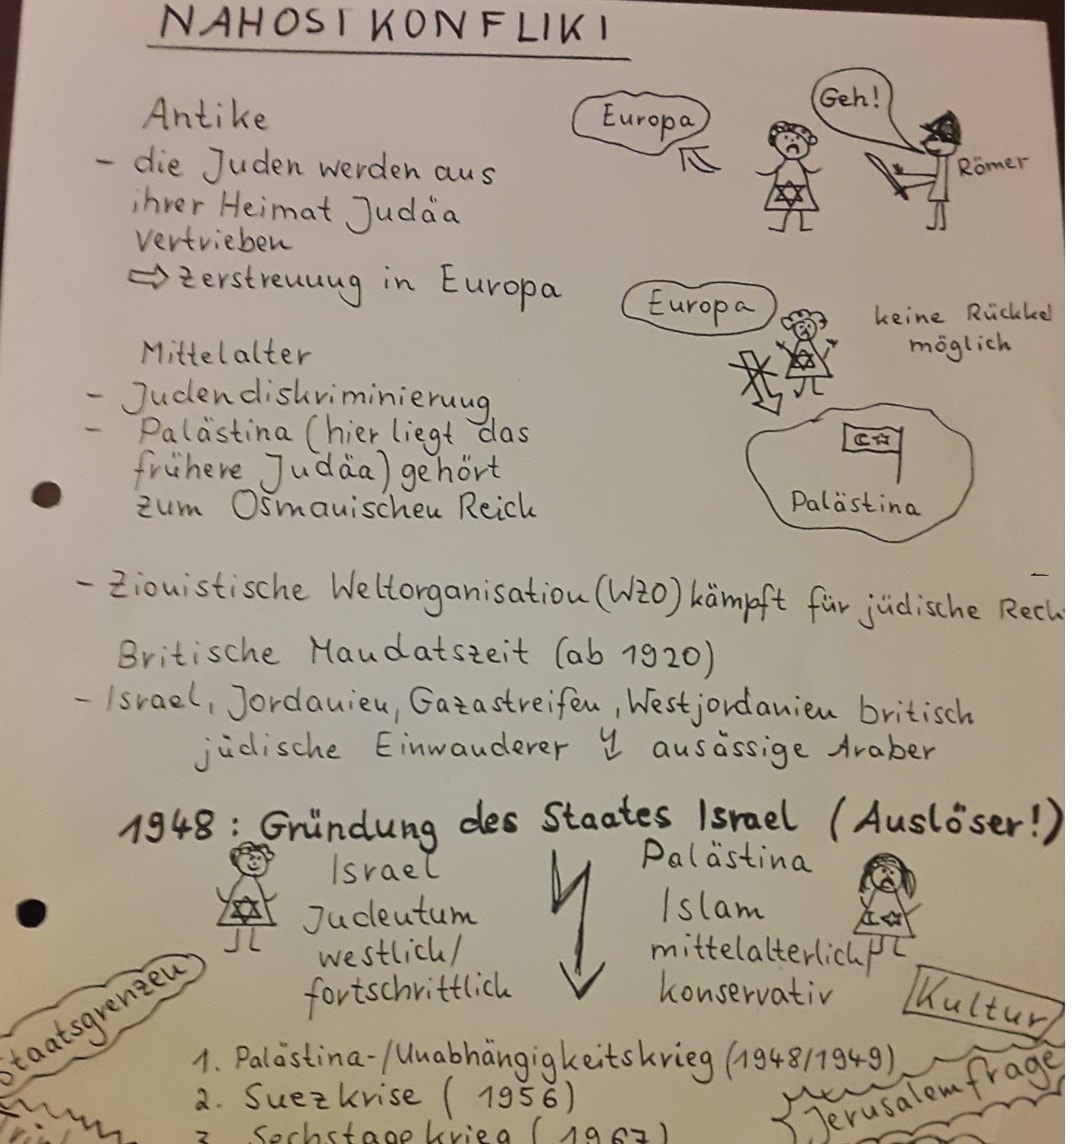 NAHOSTKONFLIKT
Antike
- die Juden werden aus
ihrer Heimat Judäa
vertrieben
⇨ Zerstreuung in Europa
Europa
Geh!
Römer
Mittelalter
- Judendiskriminierung
- Palästina (hier liegt das
frühere Judäa) gehört
zum Osmanischen Reich
Europa
keine Rückkel
möglich
Palästina
- Zionistische Weltorganisation (WZO) kämpft für jüdische Rech
Britische Mandatszeit (ab 1920)
- Israel, Jordanien, Gazastreifen, Westjordanien britisch
jüdische Einwanderer ↯ ansässige Araber
1948: Gründung des Staates Israel (Auslöser!)
Israel
Judentum
westlich/
fortschrittlich
Palästina
Islam
mittelalterlich/
konservativ
Staatsgrenzen
Kultur
Jerusalemfrage
1. Palästina-/Unabhängigkeitskrieg (1948/1949)
2. Suezkrise (1956)
3. Sechstagekrieg (1967)